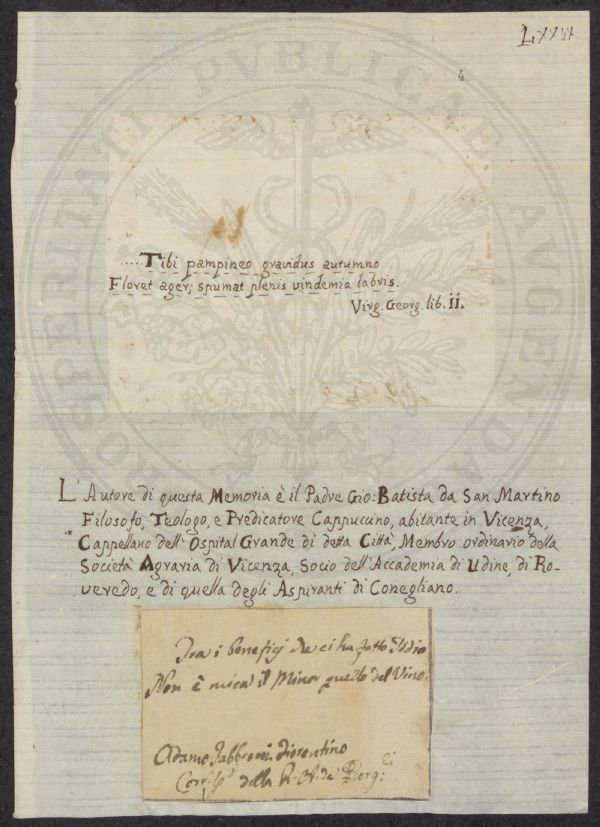 LXXVI
4
.....Tibi pampineo gravidus autumno
Floret ager; spumat plenis vindemia labris.
Virg. Georg. lib. II.
L'Autore di questa Memoria è il Padre Gio: Batista da San Martino
Filosofo, Teologo, e Predicatore Cappuccino, abitante in Vicenza,
Cappellano dell'Ospital Grande di detta Città, Membro ordinario della
Società Agraria di Vicenza, Socio dell'Accademia di Udine, di Ro-
veredo, e di quella degli Aspiranti di Conegliano.
Tra i benefizj che ci ha fatto Iddio
Non è mica il Minor quello del Vino.
Adamo Fabbroni fiorentino
Corrisp. della R. A. de' Georg:li
PROSPERITATI PVBLICAE AVGENDAE